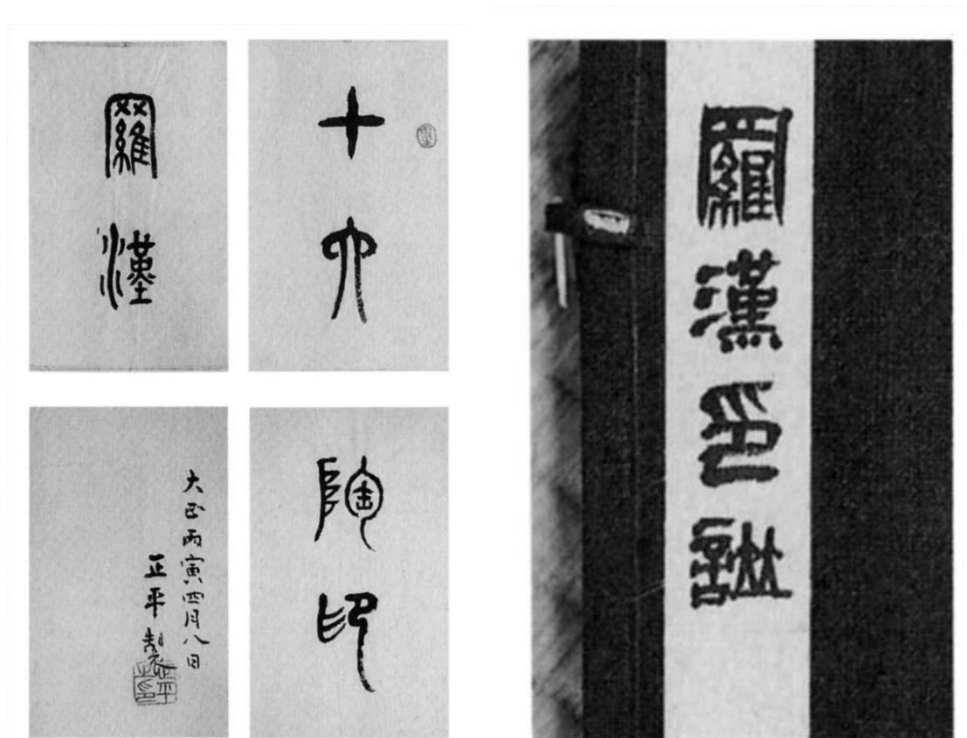 十六
羅漢
陶印
大正丙寅四月八日
正平製
羅漢印譜